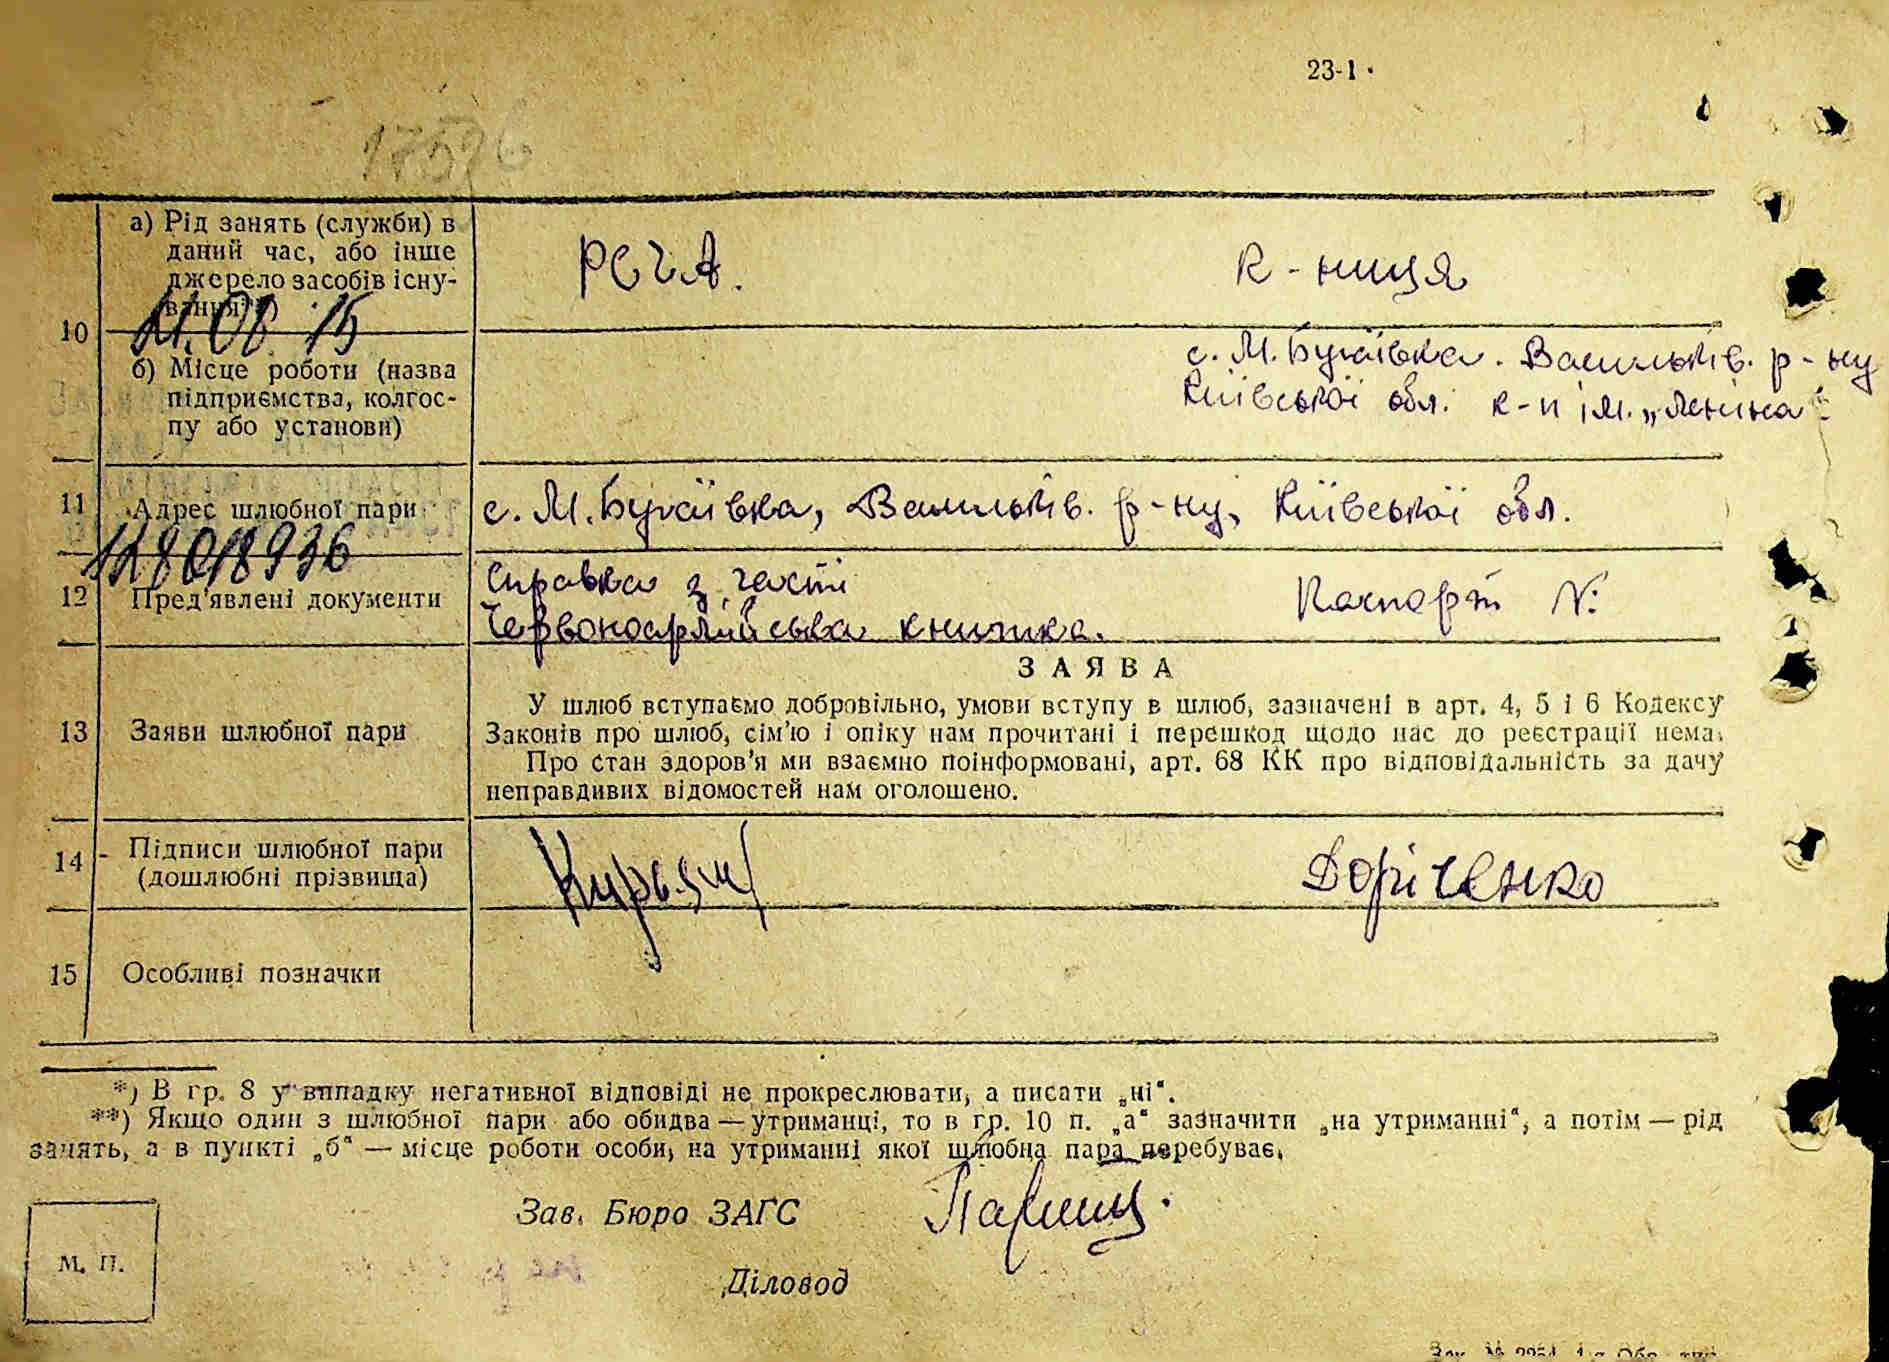 23-1
17576
10
а) Рід занять (служби) в
даний час, або інше
джерело засобів існу-
вання**)
РСЧА.
к-ниця
21.08.15
б) Місце роботи (назва
підприємства, колгос-
пу або установи)
с. М. Бугаївка. Васильків. р-ну
Київської обл. к-п ім. „Леніна"
11
Адрес шлюбної пари
с. М. Бугаївка, Васильків. р-ну, Київської обл.
12
Пред'явлені документи
Справка з часті
Червоноармійська книжка.
Паспорт №
13
Заяви шлюбної пари
ЗАЯВА
У шлюб вступаємо добровільно, умови вступу в шлюб, зазначені в арт. 4, 5 і 6 Кодексу
Законів про шлюб, сім'ю і опіку нам прочитані і перешкод щодо нас до реєстрації нема.
Про стан здоров'я ми взаємно поінформовані, арт. 68 КК про відповідальність за дачу
неправдивих відомостей нам оголошено.
14
Підписи шлюбної пари
(дошлюбні прізвища)
Доріченко
15
Особливі позначки
*) В гр. 8 у випадку негативної відповіді не прокреслювати, а писати „ні".
**) Якщо один з шлюбної пари або обидва — утриманці, то в гр. 10 п. „а" зазначити „на утриманні", а потім — рід
занять, а в пункті „б" — місце роботи особи, на утриманні якої шлюбна пара перебуває.
Зав. Бюро ЗАГС
М. П.
Діловод